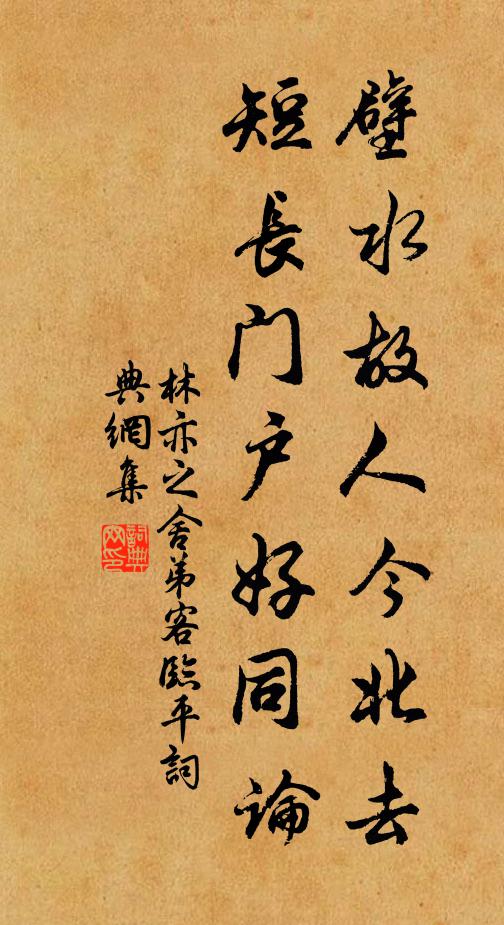 壁水故人今北去
短長門户好同論
林亦之舍弟客臨平詞
典網集
詞典
网印